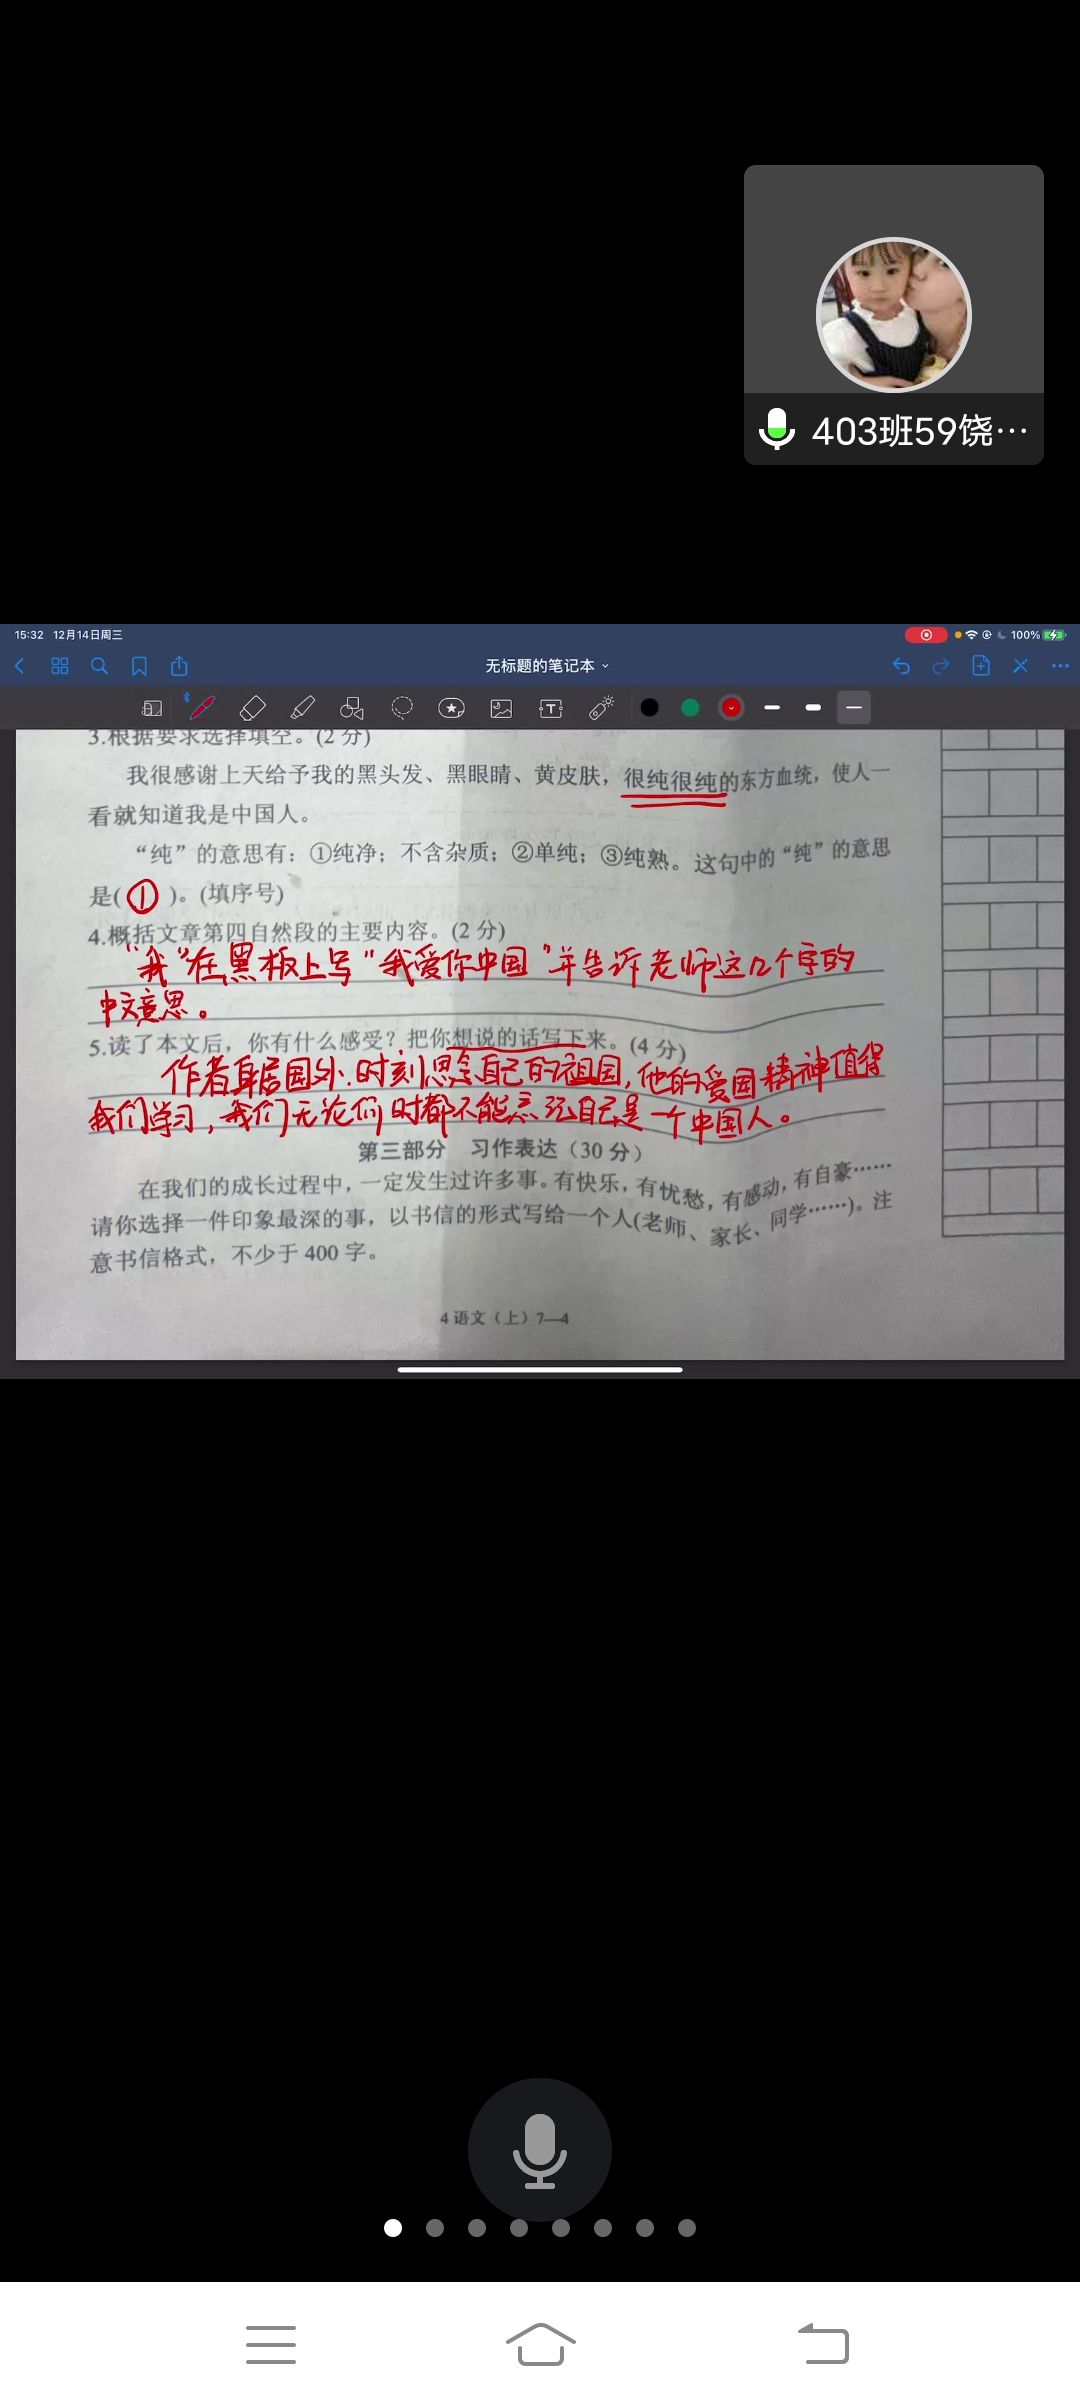 403班59饶…
15:32 12月14日周三
100%
无标题的笔记本
3.根据要求选择填空。(2 分)
我很感谢上天给予我的黑头发、黑眼睛、黄皮肤，很纯很纯的东方血统，使人一
看就知道我是中国人。
“纯”的意思有：①纯净；不含杂质；②单纯；③纯熟。这句中的“纯”的意思
是( ① )。(填序号)
4.概括文章第四自然段的主要内容。(2 分)
“我”在黑板上写“我爱你中国”并告诉老师这几个字的
中文意思。
5.读了本文后，你有什么感受？把你想说的话写下来。(4 分)
作者身居国外，时刻思念自己的祖国，他的爱国精神值得
我们学习，我们无论何时都不能忘记自己是一个中国人。
第三部分 习作表达（30 分）
在我们的成长过程中，一定发生过许多事。有快乐，有忧愁，有感动，有自豪……
请你选择一件印象最深的事，以书信的形式写给一个人(老师、家长、同学……)。注
意书信格式，不少于 400 字。
4 语文（上）7—4